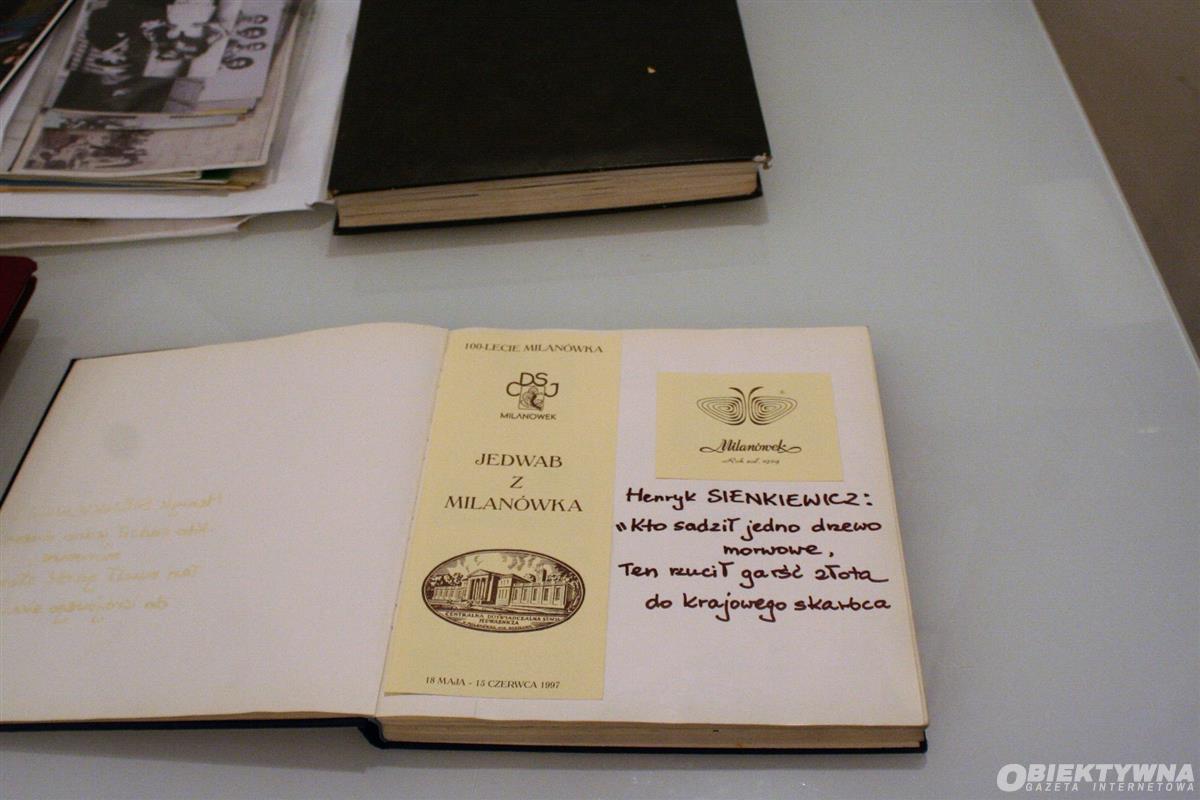 100-LECIE MILANÓWKA
DSJ
MILANOWEK
JEDWAB
Z
MILANÓWKA
CENTRALNA DOŚWIADCZALNA STACJA
JEDWABNICZA
18 MAJA - 15 CZERWCA 1997
Milanówek
Rok zał. 1924
Henryk SIENKIEWICZ:
"Kto sadził jedno drzewo
morwowe,
Ten rzucił garść złota
do krajowego skarbca
OBIEKTYWNA
GAZETA INTERNETOWA